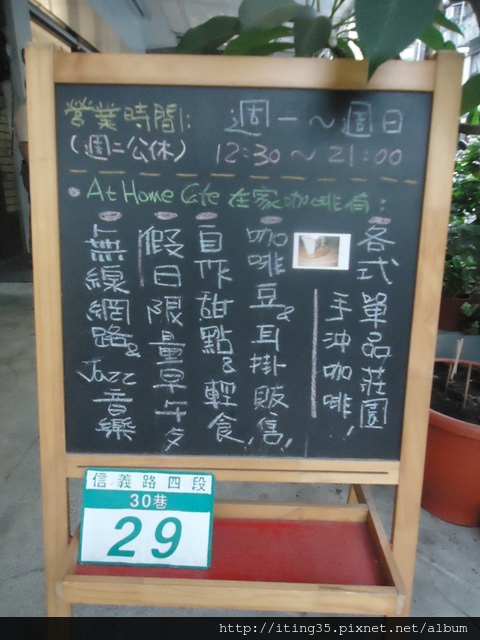 營業時間: 週一～週日
(週二公休) 12:30～21:00
At Home Cafe 在家咖啡有:
各式單品莊園
手沖咖啡!
咖啡豆&耳掛販售!
自作甜點&輕食
假日限量早午夕
無線網路&
Jazz音樂
信義路四段
30巷
29
http://iting35.pixnet.net/album